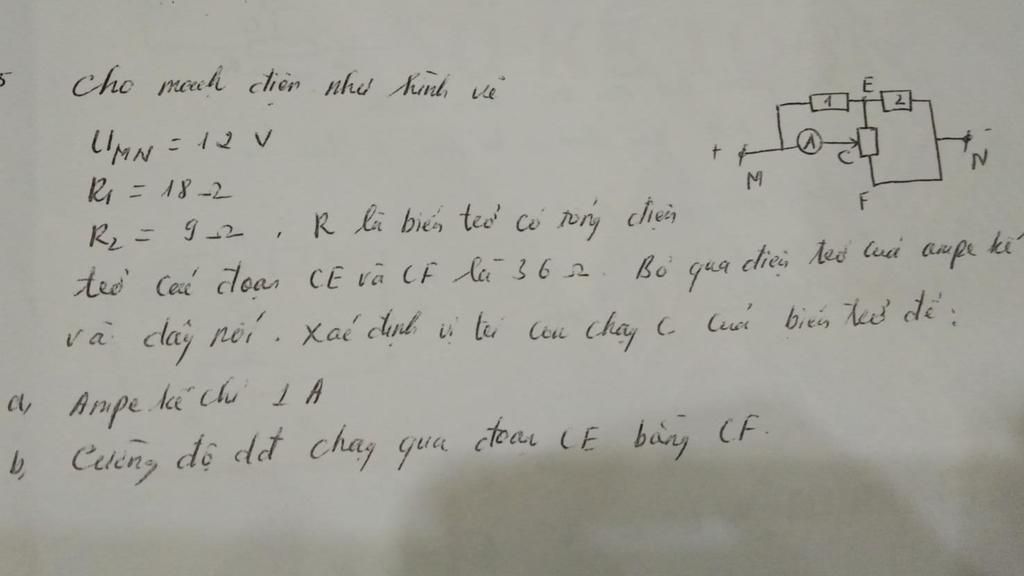 5
Cho mạch điện như hình vẽ
U_MN = 12 V
R1 = 18 Ω
R2 = 9 Ω . R là biến trở có tổng điện
trở các đoạn CE và CF là 36 Ω. Bỏ qua điện trở của ampe kế
và dây nối. Xác định vị trí con chạy C của biến trở để:
a, Ampe kế chỉ 1 A
b, Cường độ dđ chạy qua đoạn CE bằng CF.
E
1 2
+ M A C N -
F